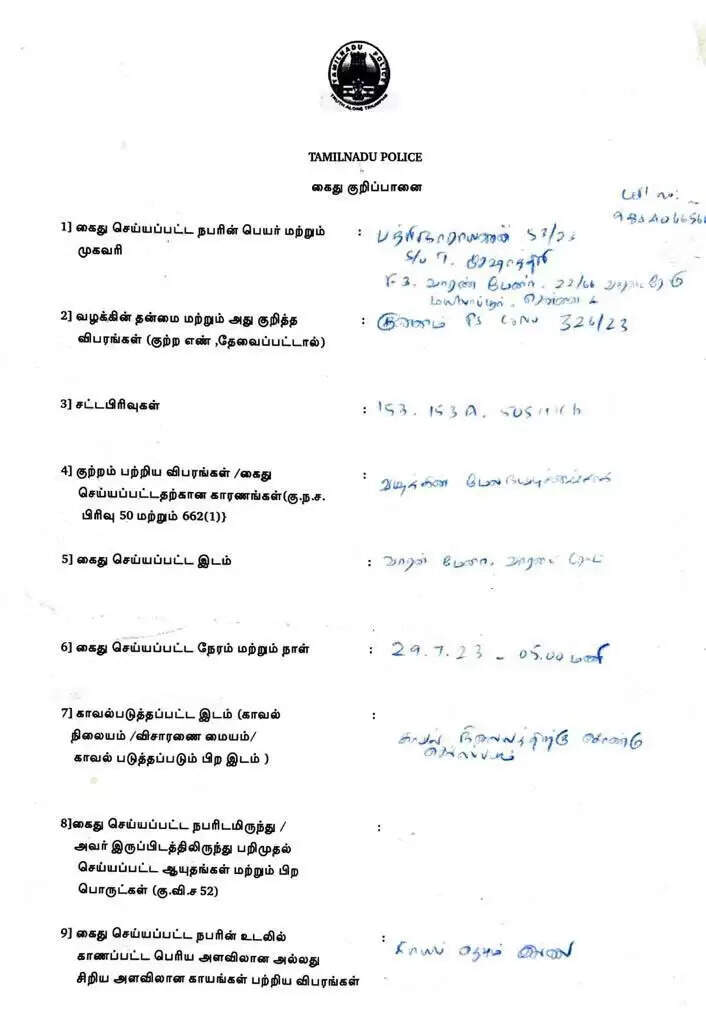 TAMILNADU POLICE
TRUTH ALONE TRIUMPHS
TAMILNADU POLICE
கைது குறிப்பானை
1] கைது செய்யப்பட்ட நபரின் பெயர் மற்றும் : பத்ரிநாராயணன் 53/23
முகவரி S/o T. சேஷாத்திரி
F-3, வாரண் மேனர், 22/66
மயிலாப்பூர், சென்னை 4
2] வழக்கின் தன்மை மற்றும் அது குறித்த : குன்னம் PS Cr.No 326/23
விபரங்கள் (குற்ற எண் ,தேவைப்பட்டால்)
3] சட்டபிரிவுகள் : 153, 153A, 505(1)(b)
4] குற்றம் பற்றிய விபரங்கள் /கைது :
செய்யப்பட்டதற்கான காரணங்கள்(கு.ந.ச.
பிரிவு 50 மற்றும் 662(1)}
5] கைது செய்யப்பட்ட இடம் : வாரன் மேனர்,
6] கைது செய்யப்பட்ட நேரம் மற்றும் நாள் : 29.7.23 - 05.00 மணி
7] காவல்படுத்தப்பட்ட இடம் (காவல் :
நிலையம் /விசாரணை மையம்/ காவல் நிலையத்திற்கு கொண்டு
காவல் படுத்தப்படும் பிற இடம் )
8]கைது செய்யப்பட்ட நபரிடமிருந்து / :
அவர் இருப்பிடத்திலிருந்து பறிமுதல்
செய்யப்பட்ட ஆயுதங்கள் மற்றும் பிற
பொருட்கள் (கு.வி.ச 52)
9] கைது செய்யப்பட்ட நபரின் உடலில் : காயம் ஏதும் இல்லை
காணப்பட்ட பெரிய அளவிலான அல்லது
சிறிய அளவிலான காயங்கள் பற்றிய விபரங்கள்